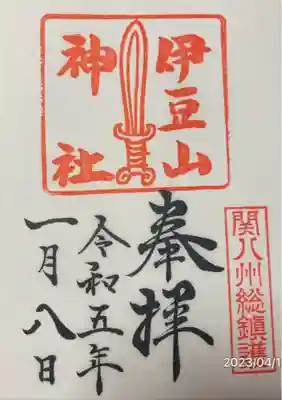 伊豆山
神社
奉拝
令和五年
一月八日
関八州総鎮護
2023/04/1